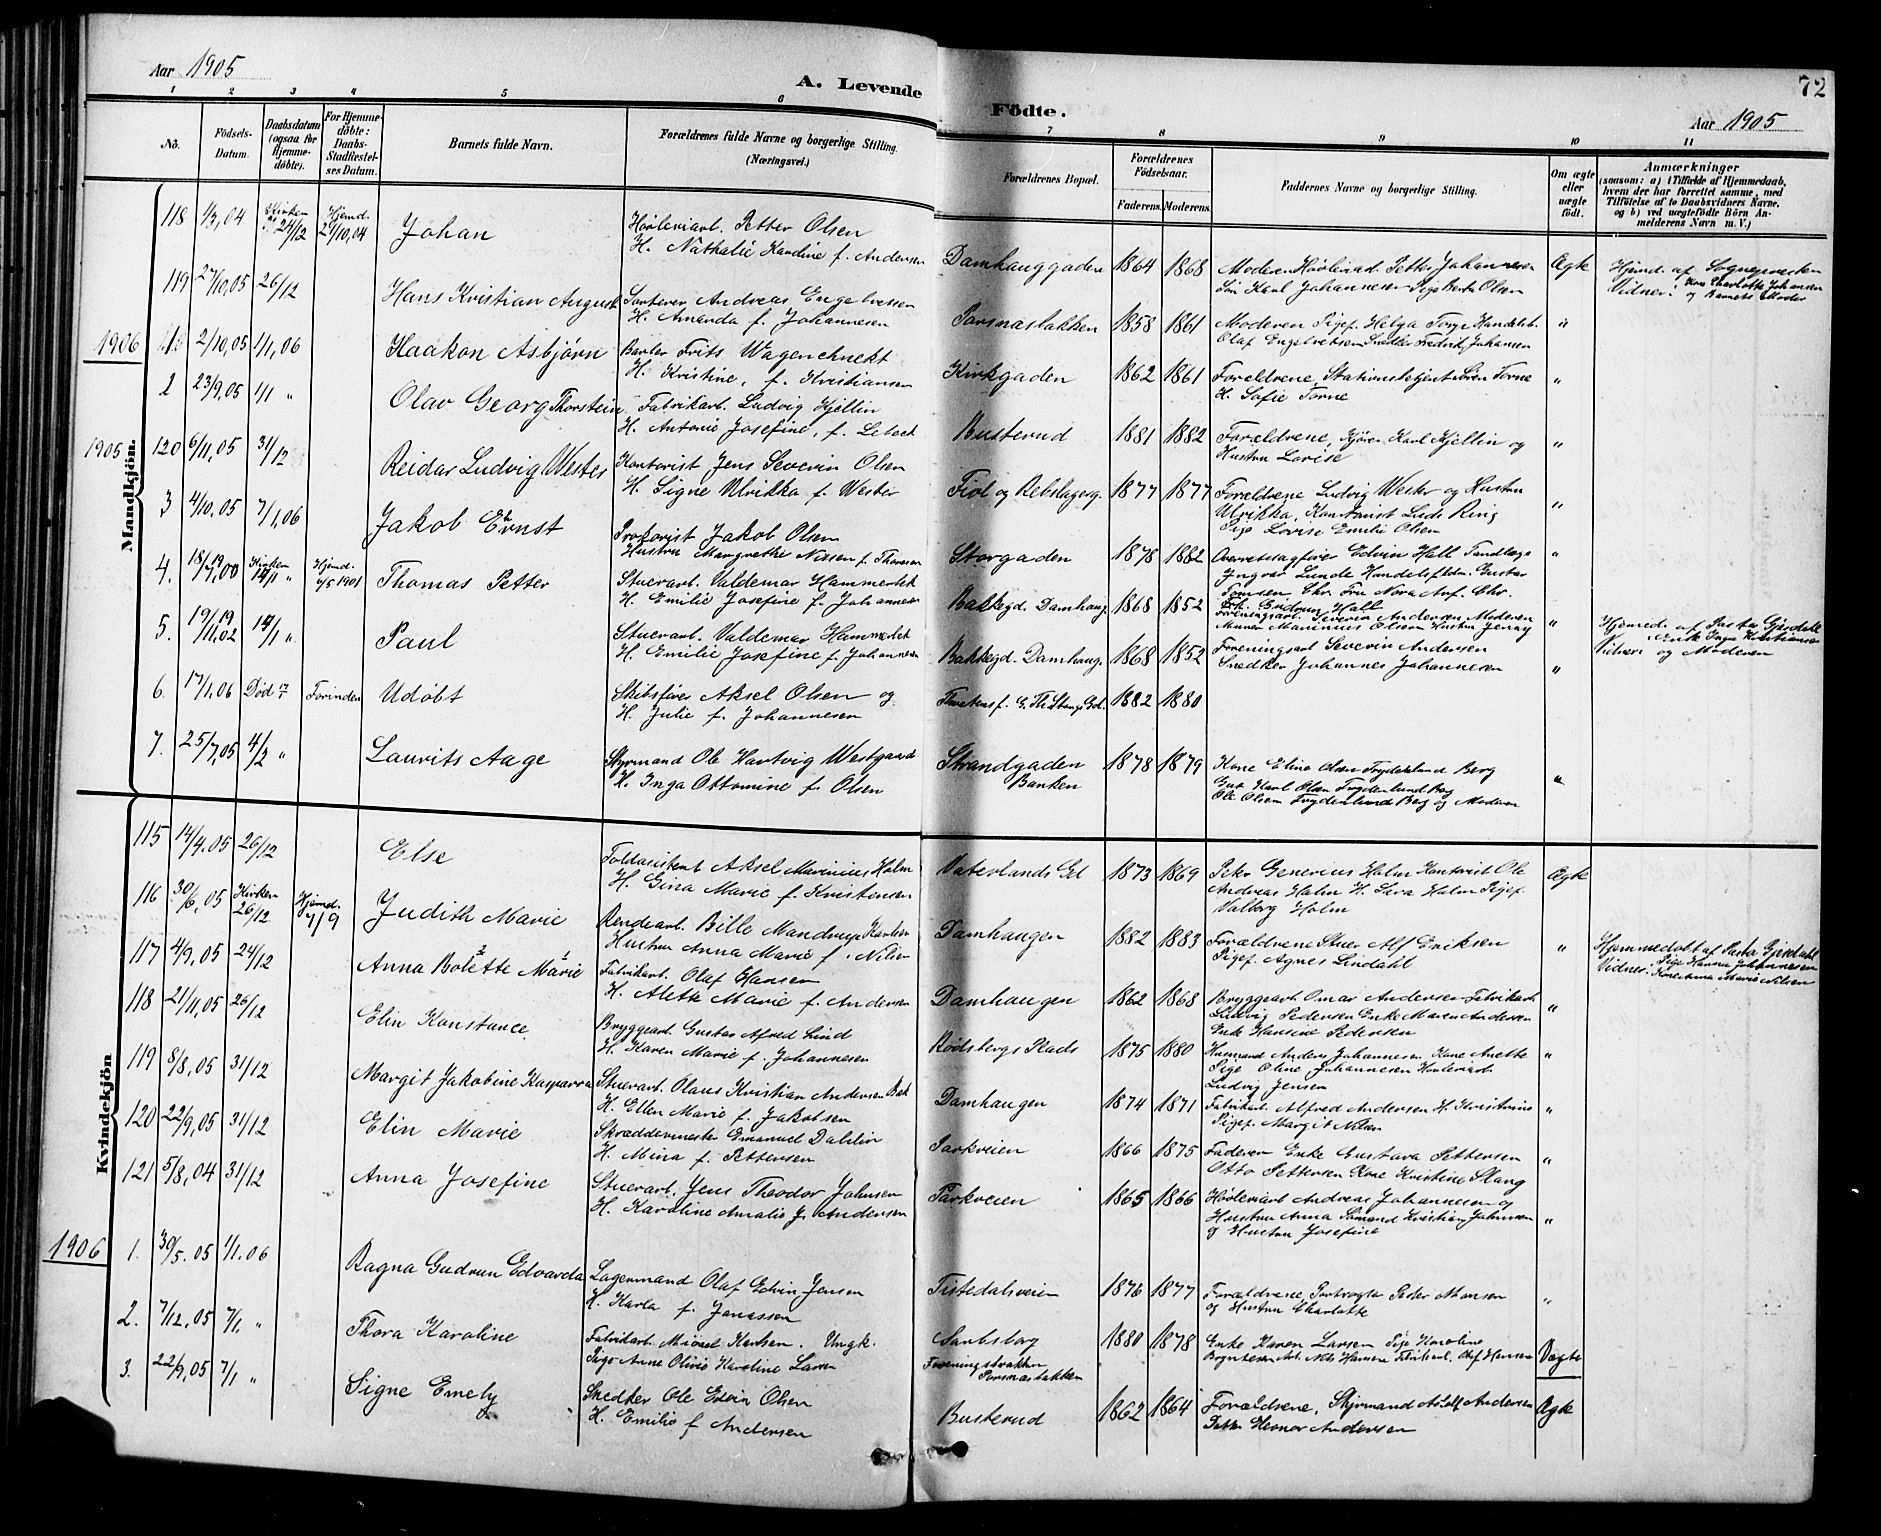 Aar 1905
A. Levende
Födte.
72
Aar 1905
1 2 3 4 5 6 7 8 9 10 11
No.
Födsels-Datum.
Daabsdatum (ogsaa for Hjemmedöbte).
For Hjemmedöbte: Daabs-Stadfæstelses Datum.
Barnets fulde Navn.
Forældrenes fulde Navne og borgerlige Stilling.
(Næringsvei.)
Forældrenes Bopæl.
Forældrenes Födselsaar.
Faderens. Moderens.
Faddernes Navne og borgerlige Stilling.
Om ægte eller uægte födt.
Anmærkninger
(saasom: a) i Tilfælde af Hjemmedaab,
hvem der har forrettet samme, med
Tilföielse af to Daabsvidners Navne,
og b) ved uægtefödte Börn An-
melderens Navn m. V.)
Mandkjön.
118 1/3,04 Kirken 24/12 Hjemd. 29/10,04 Johan
Høvleriarb. Petter Olsen
H. Nathalie Kardine f. Andersen
Damhauggaden 1864 1868
Søn Karl Johannesen Pige Berta Olsen
Ægte
Hjemd. af
Vidner: Kone Charlotte Johansen
og Barnets Moder
119 27/10,05 26/12 Hans Kristian August
Andreas Engebretsen
H. Amanda f. Johannesen
1858 1861
Moderen Pigef. Helga
Olaf Engebretsen Snedker Fredrik Johansen
"
1906
2/10,05 1/1,06 Haakon Asbjørn
Frits Wagenchnekt
H. Kristine, f. Kristiansen
Kirkgaden 1862 1861
Forældrene, Stationsbetjent Søren Torne
H. Sofie Torne
"
2 23/9,05 1/1 " Olav Georg Thorstein
Fabrikarb. Ludvig Kjellin
H. Antonie Josefine, f.
Busterud 1881 1882
Forældrene, Kjører Karl Kjellin og
Hustru Lovise
"
1905
120 6/11,05 31/12 Reidar Ludvig Wester
Kontorist Jens Severin Olsen
H. Signe Ulrikka f. Wester
Fiol og Rebslagerg. 1877 1877
Forældrene Ludvig Wester og Hustru
Ulrikka, Kontorist Ring
Pige Lovise Emilie Olsen
"
3 4/10,05 7/1,06 Jakob Ernst
Prokurist Jakob Olsen
Hustru Margrethe Nissen f. Thoresen
Storgaden 1878 1882
Overretssagfører Edvin Hall Tandlæge
Ingvar Lunde
Fru Nora
Frk. Gudrun Hall
"
4. 18/7,00 Kirken 14/1 " Hjemd. 4/5 1901 Thomas Petter
Stuerarb. Valdemar Hammerbek
H. Emilie Josefine f. Johannesen
Bakkegd. Damhaug. 1868 1852
Foreningsarb. Severin Andersen Moderen
Murer Marinius Olsen Hustru Jenny
"
5. 19/11,02 14/1 " Paul
Stuerarb. Valdemar Hammerbek
H. Emilie Josefine f. Johannesen
Bakkegd. Damhaug. 1868 1852
Foreningsarb Severin Andersen
Snedker Johannes Johannesen
"
Hjemd. af Pastor Gjerdahl
Vidner: Enke Inga Kristiansen
og Moderen
6. 17/1,06 Død Forinden Udøbt
Skibsfører Aksel Olsen og
H. Julie f. Johannesen
1882 1880
7. 25/7,05 4/2 " Laurits Aage
Styrmand Ole Hartvig Westgaard
H. Inga Ottomine f. Olsen
Strandgaden
Banken
1878 1879
Kone Elina Olsen Frydenlund Berg
Gut Karl Olsen Frydenlund Berg
Ole Olsen Frydenlund Berg og Moderen
"
Kvindekjön
115 14/4,05 26/12 Else
Toldassistent Aksel Marinius Holm
H. Gina Marie f. Kristensen
Vaterlands Gd 1873 1869
Peter Generius Holm Kontorist Ole
Andreas Holm H. Sara Holm Pigef.
Valborg Holm
Ægte
116 30/6,05 Kirken 26/12 Hjemd. 7/9 Judith Marie
Rendearb. Bille Mandrup Karlsen
Hustru Anna Marie f. Nilsen
Damhaugen 1882 1883
Forældrene Stuer Alf Eriksen
Pigef. Agnes Lindahl
"
Hjemmedøbt af Pastor Gjerdahl
Vidner: Pige Hanna Johannesen
Kone Anna Marie Nilsen
117 4/9,05 24/12 Anna Bolette Marie
Fabrikarb. Olaf Hansen
H. Alette Marie f. Andersen
Damhaugen 1862 1868
Bryggearb. Omar Andersen Fabrikarb
Ludvig Pedersen Enke Maren Andersen
Enke Hansine Pedersen
"
118 21/11,05 26/12 Elin Konstance
Bryggearb. Gustav Alfred Lind
H. Karen Marie f. Johannesen
Rødsbergs Plads 1875 1880
Husmand Anders Johannesen Kone Anette
Pige Oline Johannesen Høvleriarb
Ludvig Jensen
"
119 8/8,05 31/12 Margit Jakobine Kasparra
Stuerarb. Olaus Kristian Andersen Bæk
H. Ellen Marie f. Jakobsen
Damhaugen 1874 1871
Fabrikarb. Alfred Andersen H. Kristine
Pigef. Margit Nilsen
"
120 22/9,05 31/12 Elin Marie
Skræddermester Emanuel Dahlin
H. Mina f. Pettersen
Parkveien 1866 1875
Faderen Enke Gustava Pettersen
Otto Pettersen Kone Kristine Stang
"
121 5/8,04 31/12 Anna Josefine
Stuerarb. Jens Theodor Johnsen
H. Karoline Amalie f. Andersen
Parkveien 1865 1866
Høvleriarb Andreas Johannesen og
Hustru Anna Kristian Johnsen
og Hustru Josefine
"
1906
1. 30/5.05 1/1.06 Ragna Gudrun Edvarda
Lagermand Olaf Edvin Jensen
H. Karla f. Jonassen
Tistedalsveien 1876 1877
Forældrene, Peder Monsen
og Hustru Charlotte
"
2. 7/12,05 7/1 " Thora Karoline
Fabrikarb. Karlsen. Ungk.
Pige Anne Olivie Karoline Larsen
Sarpsborg
1880 1878
Enke Karen Larsen Pige Karoline
Arb. Nils Hansen Fabrikarb. Olaf Hansen
Uægte
3. 22/9,05 7/1 " Signe Emely
Snedker Ole Edvin Olsen
H. Emilie f Andersen
Busterud 1862 1864
Forældrene, Styrmand Adolf Andersen
Andersen
Ægte